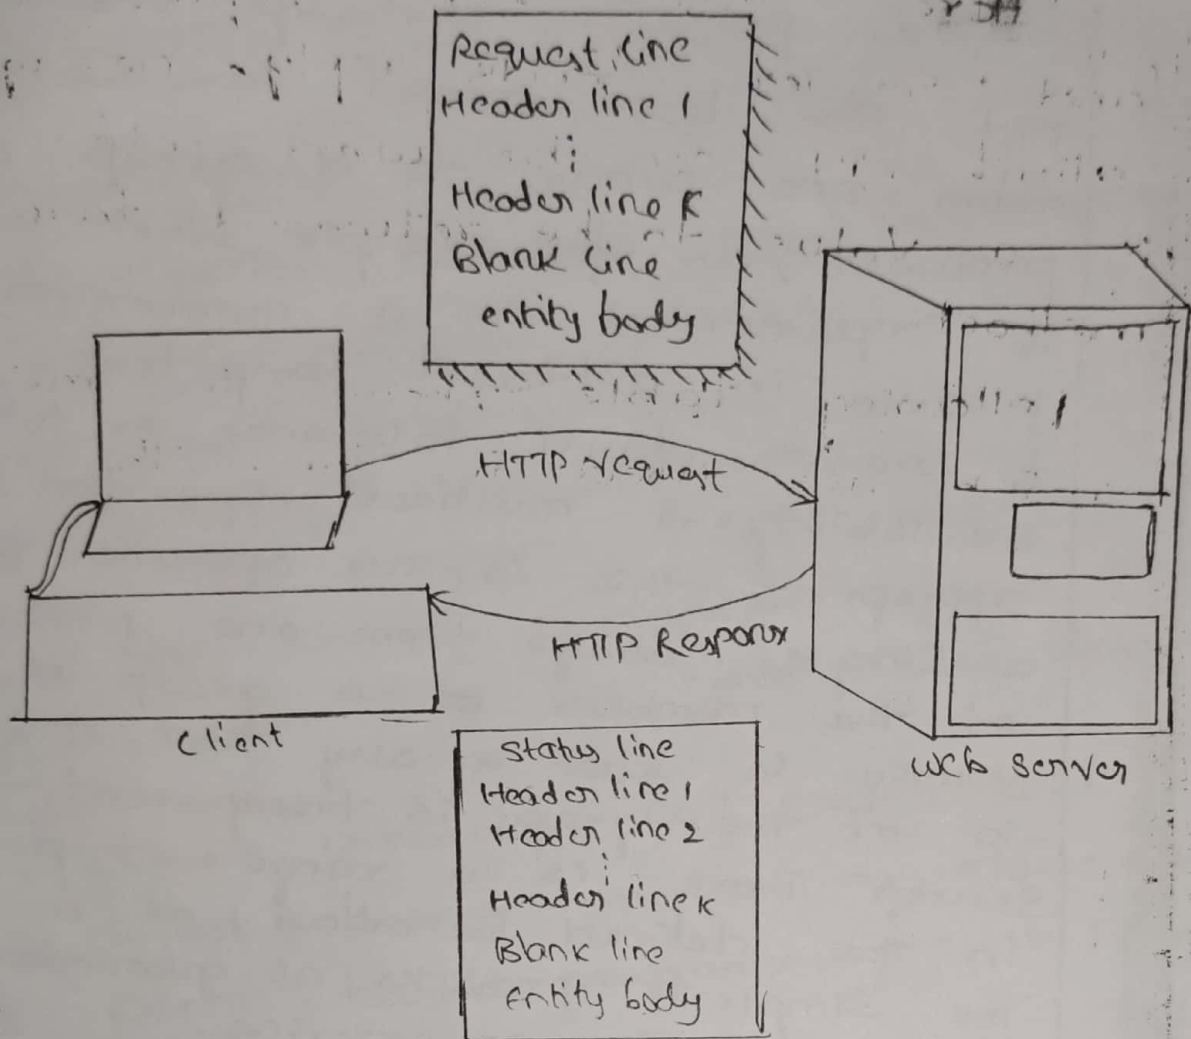 Request line
Header line 1
⋮
Header line K
Blank line
entity body
HTTP request
HTTP Response
Client
Web server
Status line
Header line 1
Header line 2
⋮
Header line K
Blank line
Entity body